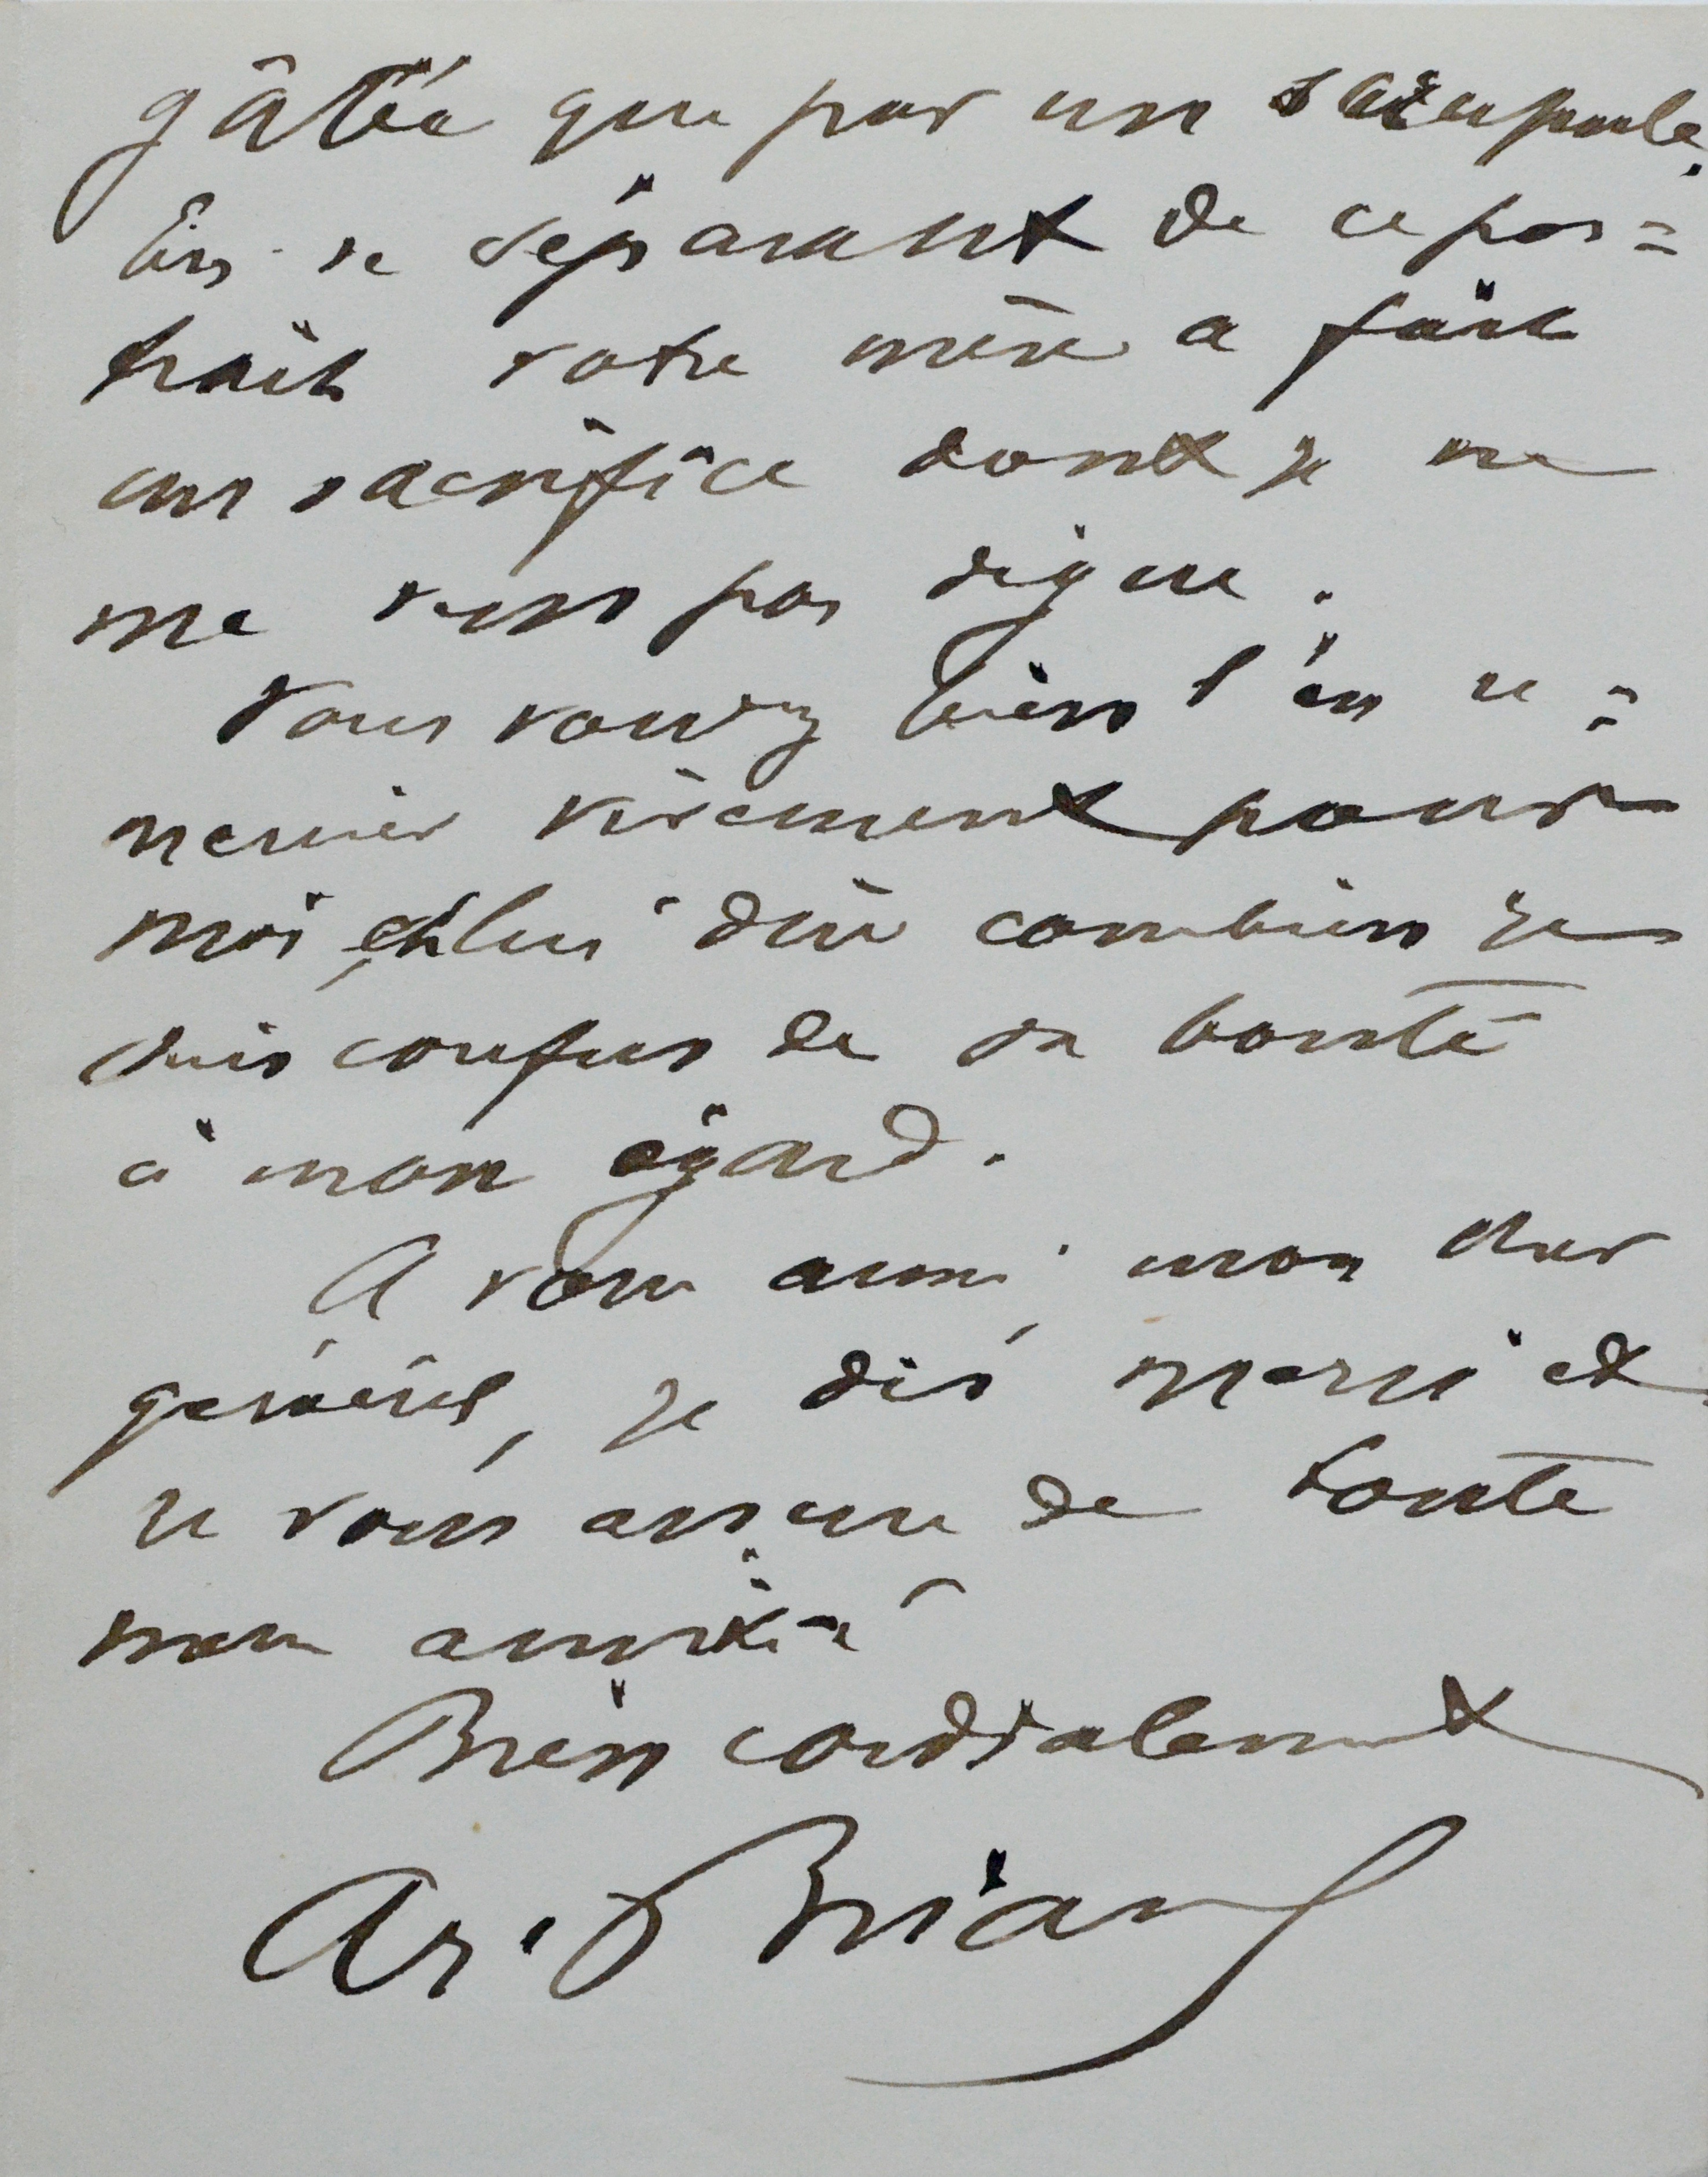 gâtée que par un scrupule.
En se séparant de ce por=
trait votre mère a fait
un sacrifice dont je ne
me sens pas digne.
Vous voudrez bien l'en re=
mercier vivement pour
moi et lui dire combien je
suis confus de sa bonté
à mon égard.
A vous aussi, mon cher
général, je dis merci et
je vous assure de toute
mon amitié
Bien cordialement
Ar. Briand